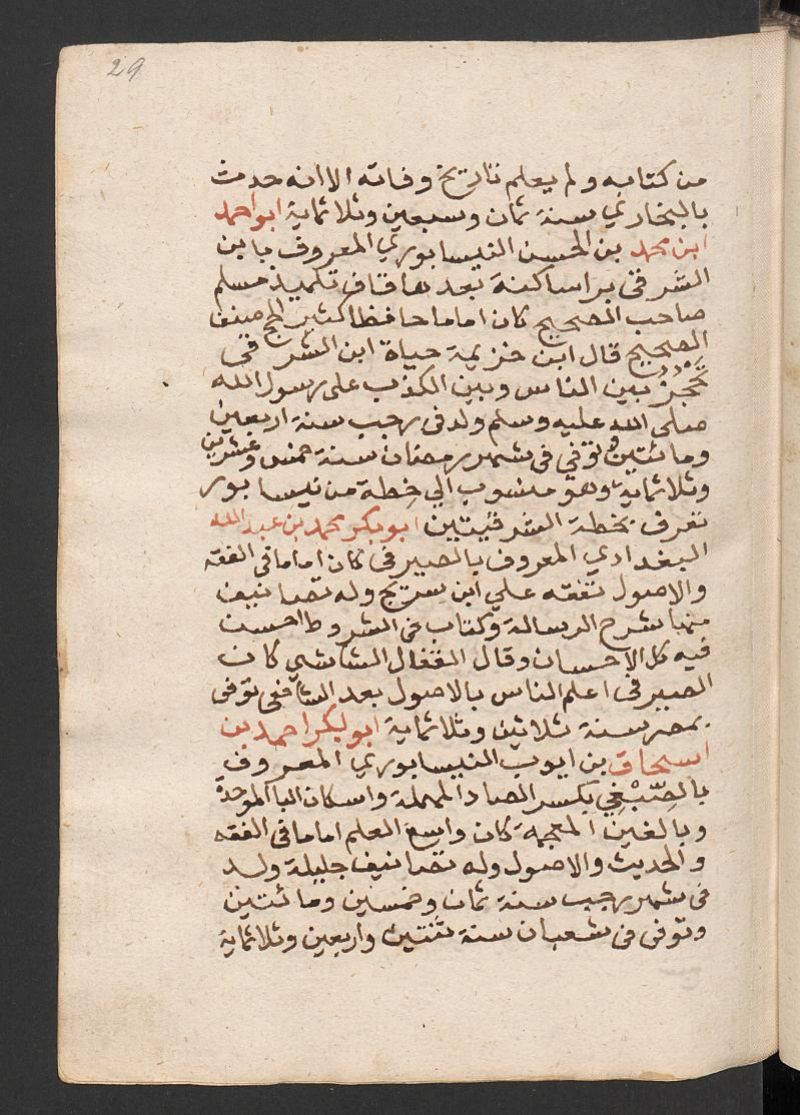 29
من كتابه ولم يعلم تاريخ وفاته الا انه حدث
بالبخاري سنة ثمان وسبعين وثلاثماية ابو احمد
ابن محمد بن الحسن النيسابوري المعروف بابن
الشرقي براساكنة بعدها قاف تلميذ مسلم
صاحب الصحيح كان اماما حافظا كثير الحج صنف
الصحيح قال ابن خزيمة حياة ابن الشرقي
تحجز بين الناس وبين الكذب على رسول الله
صلى الله عليه وسلم ولد في رجب سنة اربعين
ومائتين وتوفي في شهر رمضان سنة خمس وعشرين
وثلاثماية وهو منسوب الي خطة من نيسابور
تعرف بخطة الشرقيين ابو بكر محمد بن عبد الله
البغدادي المعروف بالصيرفي كان اماما في الفقه
والاصول تفقه علي ابن سريج وله تصانيف
منها شرح الرسالة وكتاب في الشروط احسن
فيه كل الاحسان وقال القفال الشاشي كان
الصيرفي اعلم الناس بالاصول بعد الشافعي توفي
بمصر سنة ثلاثين وثلاثماية ابو بكر احمد بن
اسحاق بن ايوب النيسابوري المعروف
بالصِّبْغِي بكسر الصاد المهملة واسكان الباالموحدة
وبالغين المعجمة كان واسع العلم اماما في الفقه
والحديث والاصول وله تصانيف جليلة ولد
في شهر رجب سنة ثمان وخمسين ومائتين
وتوفي في شعبان سنة ثنتين واربعين وثلاثماية